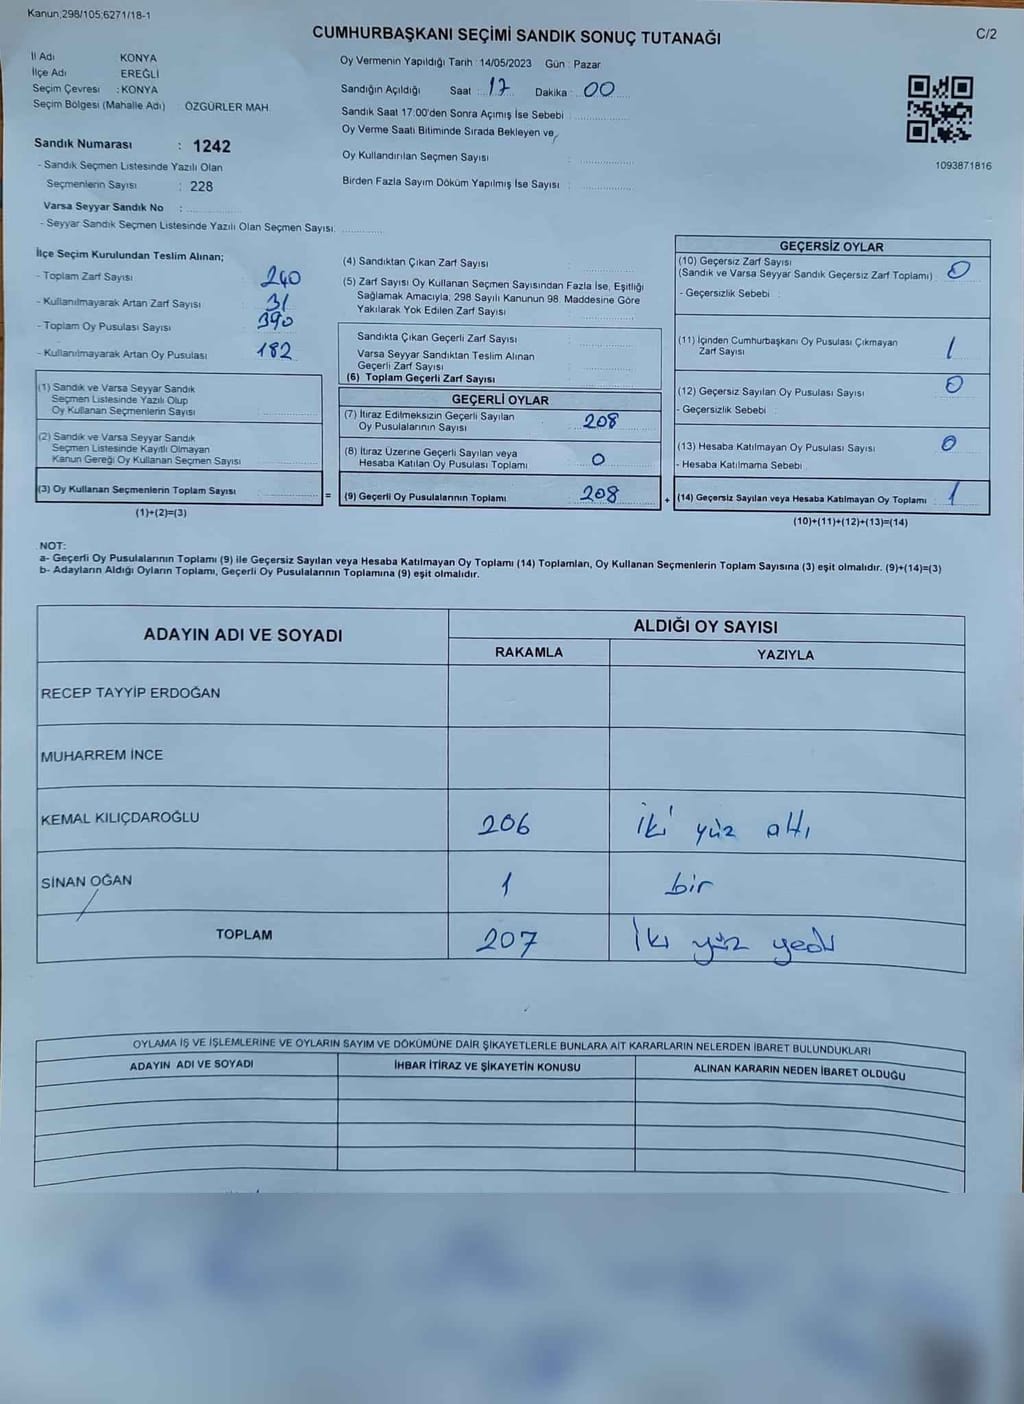 Kanun;298/105;6271/18-1
CUMHURBAŞKANI SEÇİMİ SANDIK SONUÇ TUTANAĞI
C/2
İl Adı KONYA
İlçe Adı EREĞLİ
Seçim Çevresi : KONYA
Seçim Bölgesi (Mahalle Adı) ÖZGÜRLER MAH.
Sandık Numarası : 1242
- Sandık Seçmen Listesinde Yazılı Olan
Seçmenlerin Sayısı : 228
Varsa Seyyar Sandık No :
- Seyyar Sandık Seçmen Listesinde Yazılı Olan Seçmen Sayısı.
Oy Vermenin Yapıldığı Tarih : 14/05/2023 Gün : Pazar
Sandığın Açıldığı Saat : 17 Dakika : 00
Sandık Saat 17:00'den Sonra Açımış İse Sebebi
Oy Verme Saati Bitiminde Sırada Bekleyen ve
Oy Kullandırılan Seçmen Sayısı :
Birden Fazla Sayım Döküm Yapılmış İse Sayısı :
1093871816
İlçe Seçim Kurulundan Teslim Alınan;
- Toplam Zarf Sayısı 240
- Kullanılmayarak Artan Zarf Sayısı 31
- Toplam Oy Pusulası Sayısı 390
- Kullanılmayarak Artan Oy Pusulası 182
(1) Sandık ve Varsa Seyyar Sandık
Seçmen Listesinde Yazılı Olup
Oy Kullanan Seçmenlerin Sayısı
(2) Sandık ve Varsa Seyyar Sandık
Seçmen Listesinde Kayıtlı Olmayan
Kanun Gereği Oy Kullanan Seçmen Sayısı
(3) Oy Kullanan Seçmenlerin Toplam Sayısı =
(1)+(2)=(3)
(4) Sandıktan Çıkan Zarf Sayısı
(5) Zarf Sayısı Oy Kullanan Seçmen Sayısından Fazla İse, Eşitliği
Sağlamak Amacıyla, 298 Sayılı Kanunun 98. Maddesine Göre
Yakılarak Yok Edilen Zarf Sayısı
Sandıkta Çıkan Geçerli Zarf Sayısı
Varsa Seyyar Sandıktan Teslim Alınan
Geçerli Zarf Sayısı
(6) Toplam Geçerli Zarf Sayısı
GEÇERLİ OYLAR
(7) İtiraz Edilmeksizin Geçerli Sayılan
Oy Pusulalarının Sayısı 208
(8) İtiraz Üzerine Geçerli Sayılan veya
Hesaba Katılan Oy Pusulası Toplamı 0
(9) Geçerli Oy Pusulalarının Toplamı 208 +
GEÇERSİZ OYLAR
(10) Geçersiz Zarf Sayısı
(Sandık ve Varsa Seyyar Sandık Geçersiz Zarf Toplamı) 0
- Geçersizlik Sebebi :
(11) İçinden Cumhurbaşkanı Oy Pusulası Çıkmayan
Zarf Sayısı 1
(12) Geçersiz Sayılan Oy Pusulası Sayısı 0
- Geçersizlik Sebebi :
(13) Hesaba Katılmayan Oy Pusulası Sayısı 0
- Hesaba Katılmama Sebebi
(14) Geçersiz Sayılan veya Hesaba Katılmayan Oy Toplamı 1
(10)+(11)+(12)+(13)=(14)
NOT:
a- Geçerli Oy Pusulalarının Toplamı (9) ile Geçersiz Sayılan veya Hesaba Katılmayan Oy Toplamı (14) Toplamları, Oy Kullanan Seçmenlerin Toplam Sayısına (3) eşit olmalıdır. (9)+(14)=(3)
b- Adayların Aldığı Oyların Toplamı, Geçerli Oy Pusulalarının Toplamına (9) eşit olmalıdır.
ADAYIN ADI VE SOYADI ALDIĞI OY SAYISI
RAKAMLA YAZIYLA
RECEP TAYYİP ERDOĞAN
MUHARREM İNCE
KEMAL KILIÇDAROĞLU 206 iki yüz altı
SİNAN OĞAN 1 bir
TOPLAM 207 İki yüz yedi
OYLAMA İŞ VE İŞLEMLERİNE VE OYLARIN SAYIM VE DÖKÜMÜNE DAİR ŞİKAYETLERLE BUNLARA AİT KARARLARIN NELERDEN İBARET BULUNDUKLARI
ADAYIN ADI VE SOYADI İHBAR İTİRAZ VE ŞİKAYETİN KONUSU ALINAN KARARIN NEDEN İBARET OLDUĞU